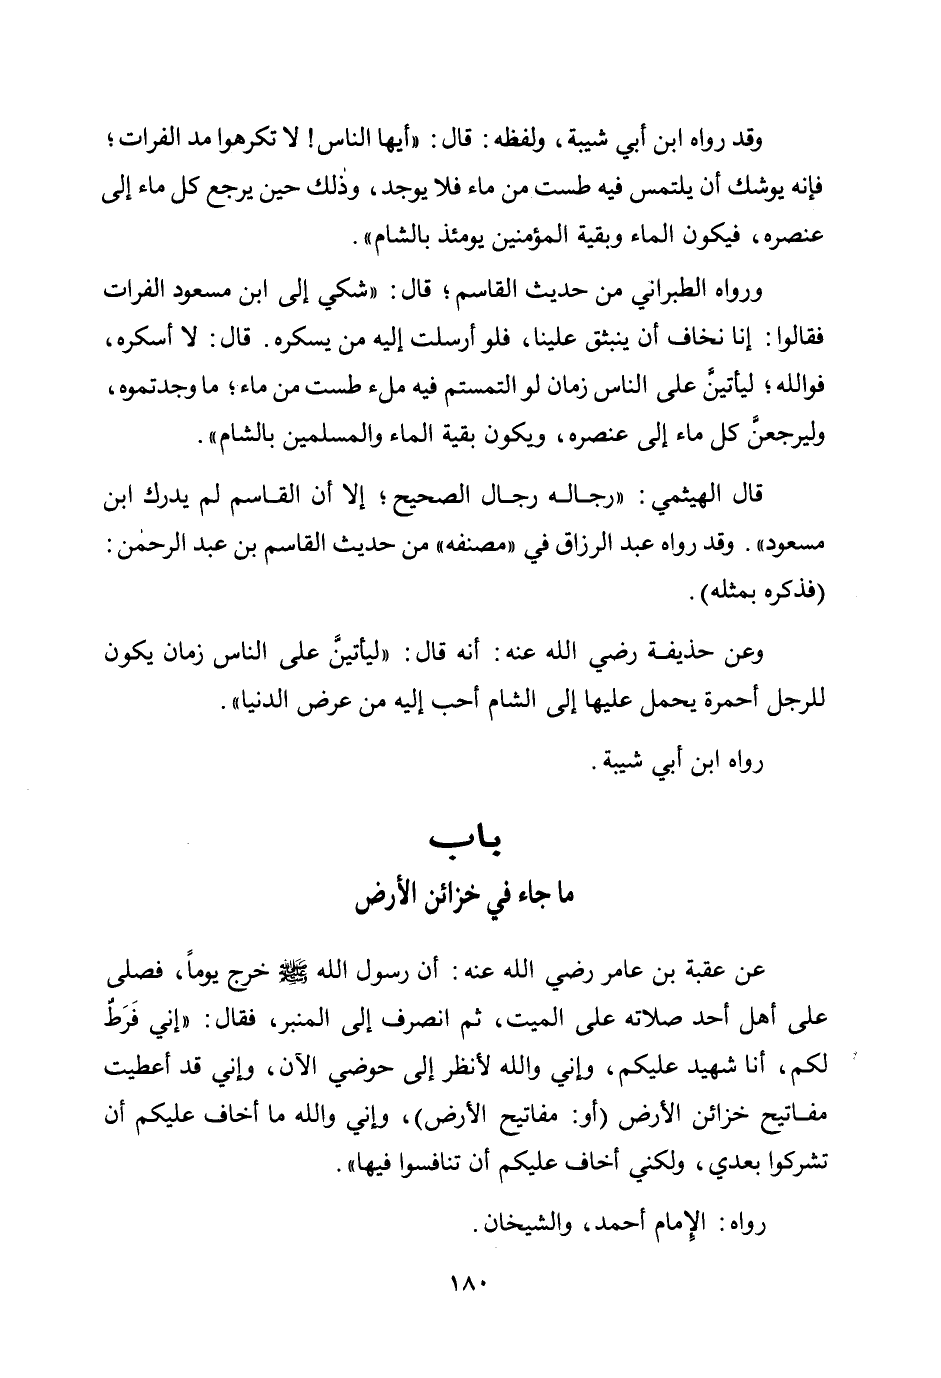 وقد رواه ابن أبي شيبة، ولفظه: قال: «أيها الناس! لا تكرهوا مد الفرات؛
فإنه يوشك أن يلتمس فيه طست من ماء فلا يوجد، وذٰلك حين يرجع كل ماء إلى
عنصره، فيكون الماء وبقية المؤمنين يومئذ بالشام».
ورواه الطبراني من حديث القاسم؛ قال: «شكي إلى ابن مسعود الفرات
فقالوا: إنا نخاف أن ينبثق علينا، فلو أرسلت إليه من يسكره. قال: لا أسكره،
فوالله؛ ليأتينَّ على الناس زمان لو التمستم فيه ملء طست من ماء؛ ما وجدتموه،
وليرجعنَّ كل ماء إلى عنصره، ويكون بقية الماء والمسلمين بالشام».
قال الهيثمي: «رجاله رجال الصحيح؛ إلا أن القاسم لم يدرك ابن
مسعود». وقد رواه عبد الرزاق في «مصنفه» من حديث القاسم بن عبد الرحمٰن:
(فذكره بمثله).
وعن حذيفة رضي الله عنه: أنه قال: «ليأتينَّ على الناس زمان يكون
للرجل أحمرة يحمل عليها إلى الشام أحب إليه من عرض الدنيا».
رواه ابن أبي شيبة.
باب
ما جاء في خزائن الأرض
عن عقبة بن عامر رضي الله عنه: أن رسول الله ﷺ خرج يوماً، فصلى
على أهل أحد صلاته على الميت، ثم انصرف إلى المنبر، فقال: «إني فَرَطٌ
لكم، أنا شهيد عليكم، وإني والله لأنظر إلى حوضي الآن، وإني قد أعطيت
مفاتيح خزائن الأرض (أو: مفاتيح الأرض)، وإني والله ما أخاف عليكم أن
تشركوا بعدي، ولكني أخاف عليكم أن تنافسوا فيها».
رواه: الإمام أحمد، والشيخان.
١٨٠